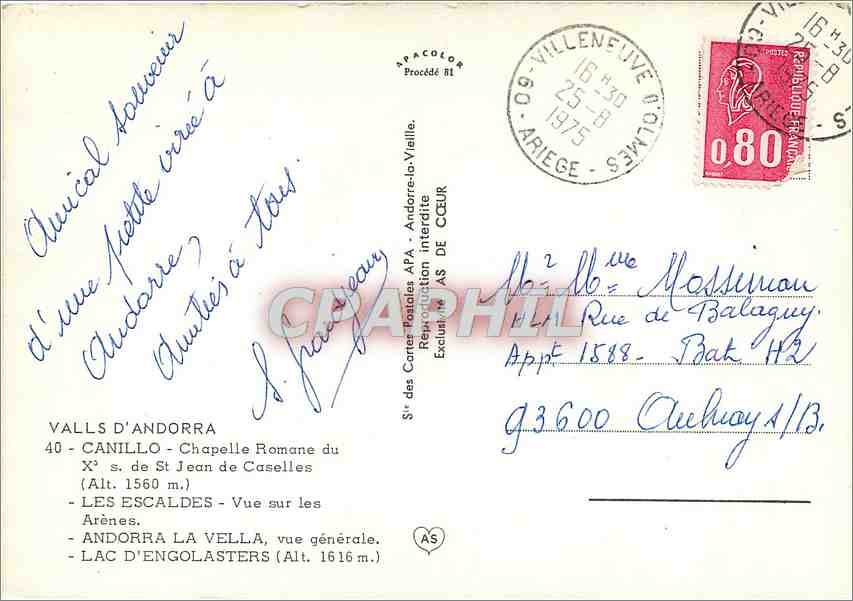 Amical souvenir
d'une petite virée à
Andorre,
Amitiés à tous.
VALLS D'ANDORRA
40 - CANILLO - Chapelle Romane du
Xᵉ s. de St Jean de Caselles
(Alt. 1560 m.)
- LES ESCALDES - Vue sur les
Arènes.
- ANDORRA LA VELLA, vue générale.
- LAC D'ENGOLASTERS (Alt. 1616 m.)
APACOLOR
Procédé 81
Sᵗᵉ des Cartes Postales APA - Andorre-la-Vieille.
Reproduction interdite
Exclusivité AS DE CŒUR
AS
09 - VILLENEUVE D'OLMES
16 H 30
25-8
1975
ARIEGE
POSTES
REPUBLIQUE FRANCAISE
0,80
16 H 30
25-8
1975
Mr Mme Mossiman
HLM Rue de Balagny.
Appt 1588 - Bat H2
93600 Aulnay s/B.
CPAPHIL